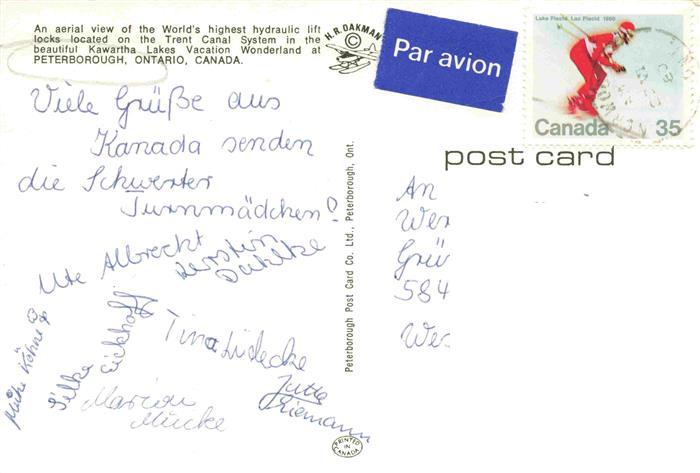 An aerial view of the World's highest hydraulic lift
locks located on the Trent Canal System in the
beautiful Kawartha Lakes Vacation Wonderland at
PETERBOROUGH, ONTARIO, CANADA.
H. R. OAKMAN
©
Par avion
Lake Placid, Lac Placid 1980
Canada 35
post card
Viele Grüße aus
Kanada senden
die Schwerter
Turnmädchen!
Ute Albrecht
Kerstin
Silke Eickhoff
Tina Lidecke
Marion
Mücke
Jutta
Riemann
Peterborough Post Card Co. Ltd., Peterborough, Ont.
An
Wer
Grü
584
Wer
PRINTED IN CANADA